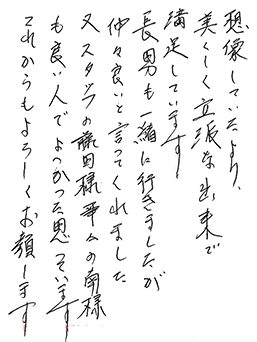 想像していたより、
美しく立派な出来で
満足しています
長男も一緒に行きましたが
仲々良いと言ってくれました
又スタッフの藤田様 華ムの南様
も良い人でよっかった思っています
これからもよろしくお願します